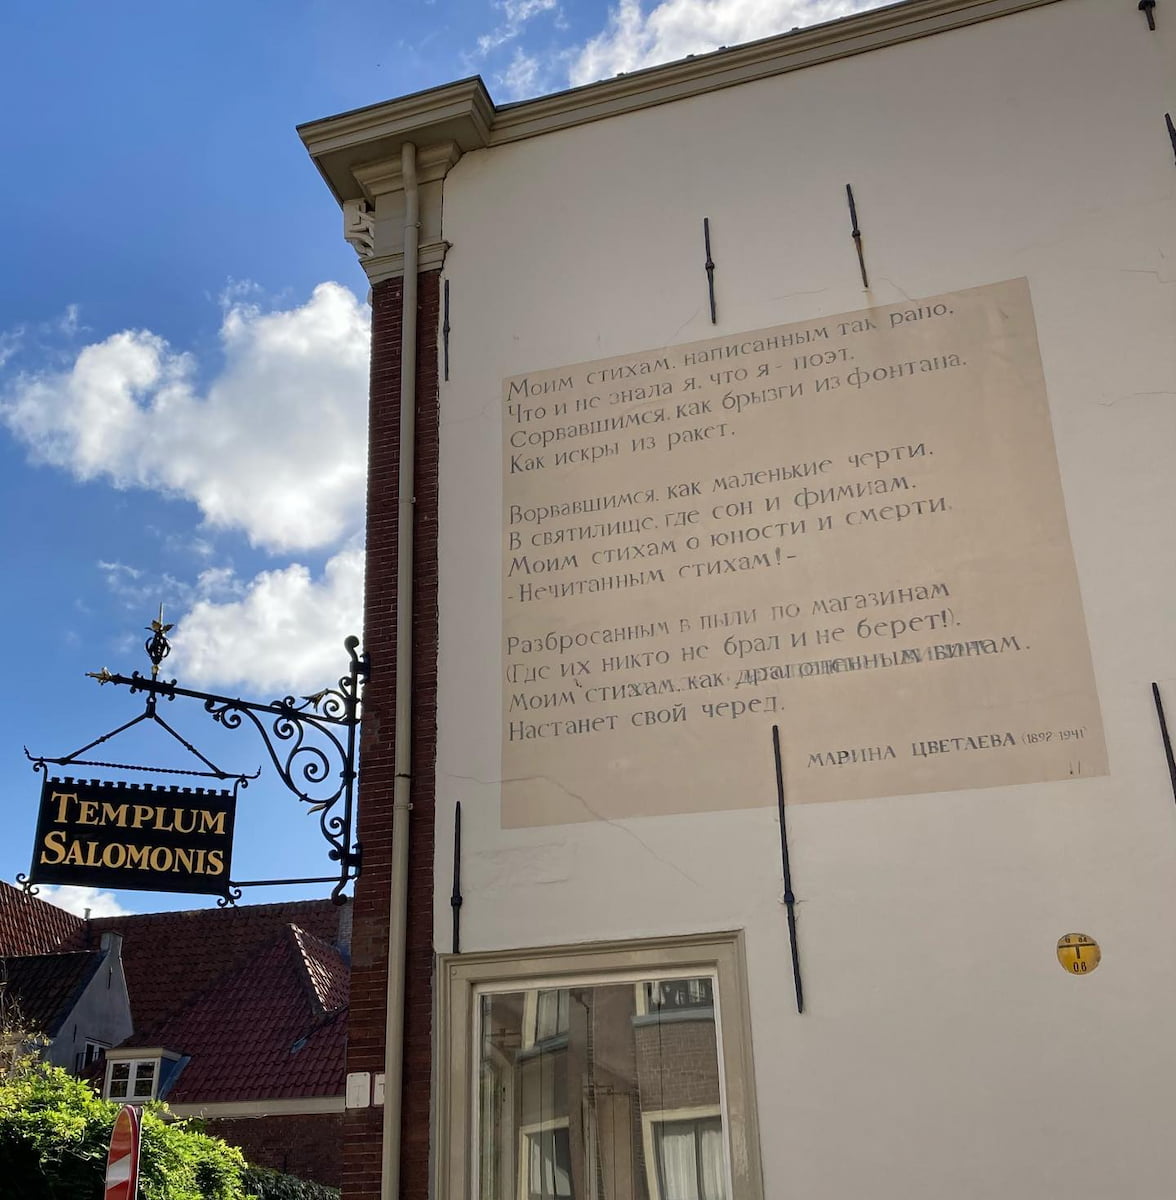 Моим стихам, написанным так рано,
Что и не знала я, что я - поэт,
Сорвавшимся, как брызги из фонтана,
Как искры из ракет.
Ворвавшимся, как маленькие черти,
В святилище, где сон и фимиам,
Моим стихам о юности и смерти,
- Нечитанным стихам! -
Разбросанным в пыли по магазинам
(Где их никто не брал и не берет!),
Моим стихам, как драгоценным винам,
Настанет свой черед.
МАРИНА ЦВЕТАЕВА (1892-1941)
TEMPLUM
SALOMONIS
G 84
T
06